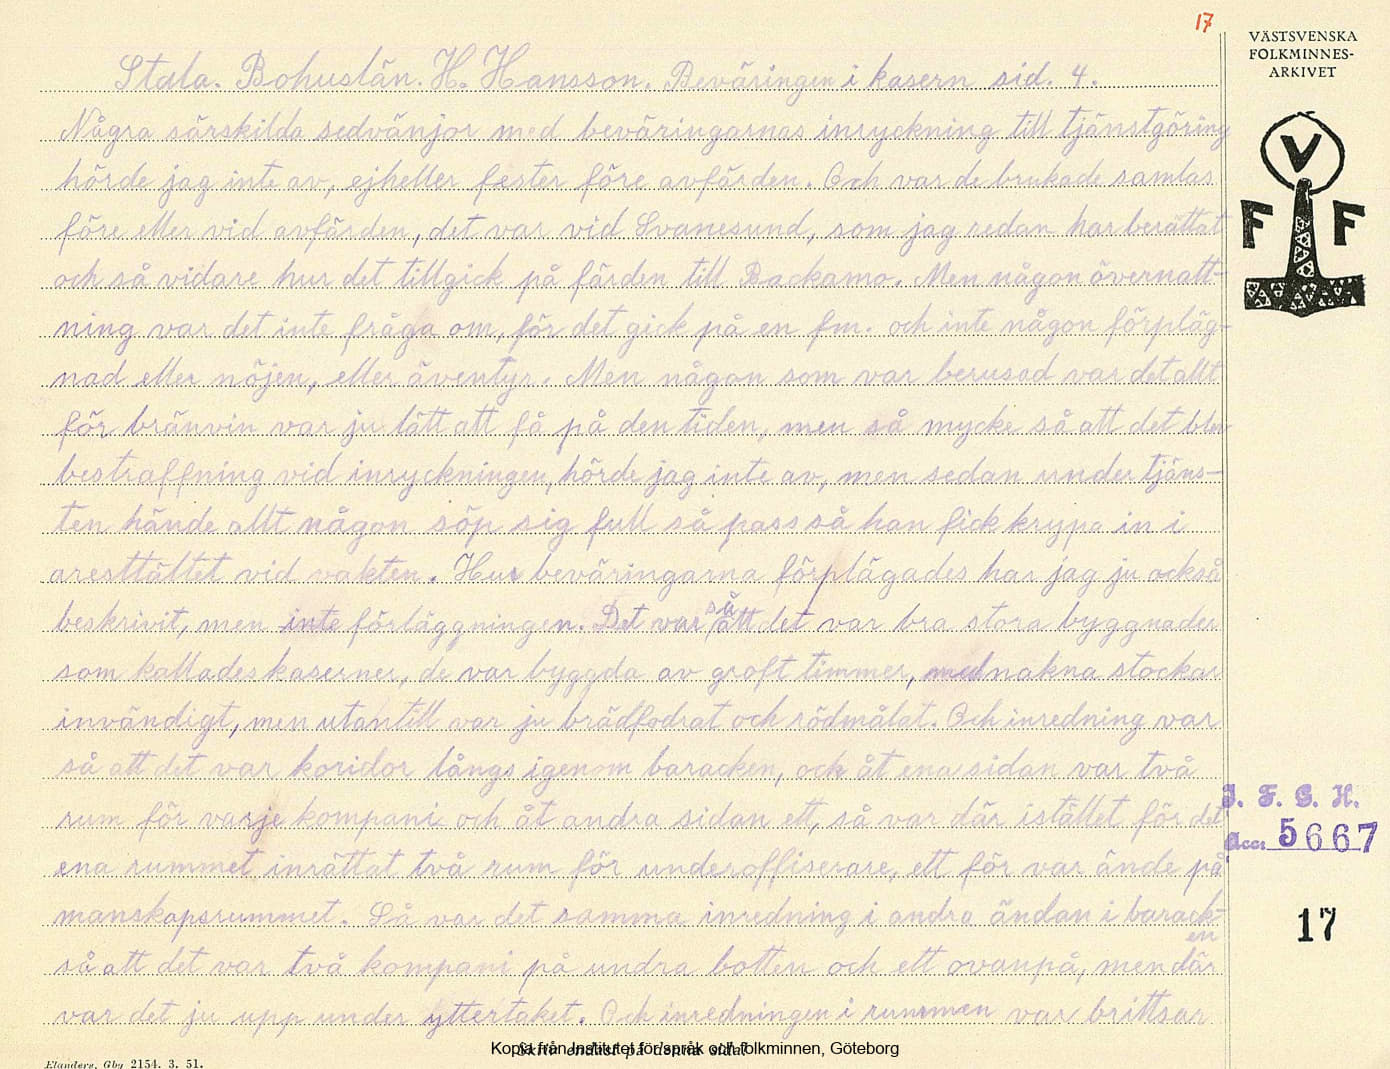 17
VÄSTSVENSKA
FOLKMINNES-
ARKIVET
V
F F
Stala. Bohuslän. H. Hansson. Beväringen i kasern sid. 4.
Några särskilda sedvänjor med beväringarnas inryckning till tjänstgöring
hörde jag inte av, ejheller fester före avfärden. Och var de brukade samlas
före eller vid avfärden, det var vid Svanesund, som jag redan har berättat
och så vidare hur det tillgick på färden till Backamo. Men någon övernatt-
ning var det inte fråga om, för det gick på en fm. och inte någon förpläg-
nad eller nöjen, eller äventyr. Men någon som var berusad var det allt
för bränvin var ju lätt att få på den tiden, men så mycke så att det blev
bestraffning vid inryckningen, hörde jag inte av, men sedan under tjäns-
ten hände allt någon söp sig full så pass så han fick krypa in i
aresttältet vid vakten. Hur beväringarna förplägades har jag ju också
beskrivit, men inte förläggningen. Det var så att det var bra stora byggnader
som kallades kaserner, de var byggda av groft timmer, med nakna stockar
invändigt, men utantill var ju brädfodrat och rödmålat. Och inredning var
så att det var koridor långs igenom baracken, och åt ena sidan var två
rum för varje kompani och åt andra sidan ett, så var där istället för det
ena rummet inrättat två rum för underoffiserare, ett för var ände på
manskapsrummet. Så var det samma inredning i andra ändan i barack-
en
så att det var två kompani på undra botten och ett ovanpå, men där
var det ju upp under yttertaket. Och inredningen i rummen var brittsar
I. F. G. H.
Acc: 5667
17
Skriv endast på denna sida!
Kopia från Institutet för språk och folkminnen, Göteborg
Elanders, Gbg 2154. 3. 51.